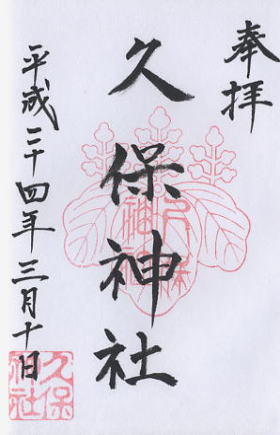 奉拝
久保神社
平成二十四年三月十日
久保
神社
久保
神社